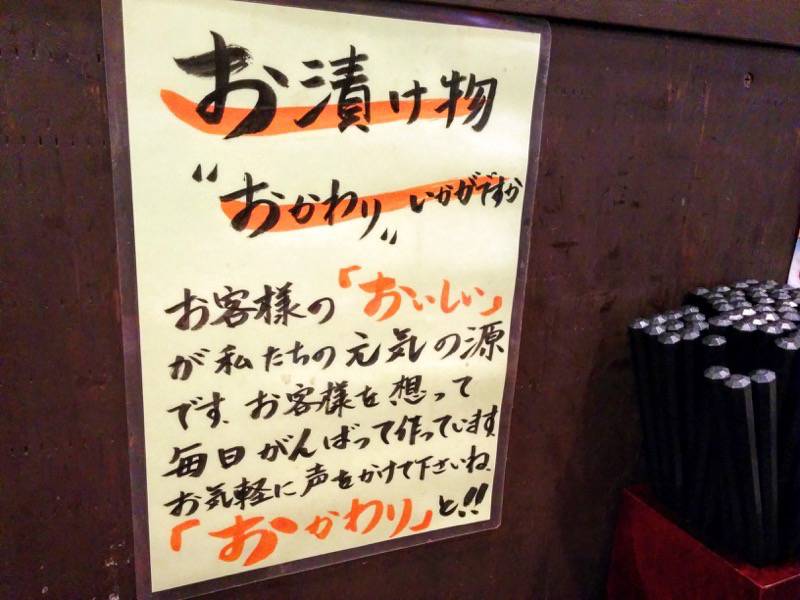 お漬け物
“おかわり„いかがですか
お客様の「おいしい」
が私たちの元気の源
です。お客様を想って
毎日がんばって作っています。
お気軽に声をかけて下さいね。
「おかわり」と!!